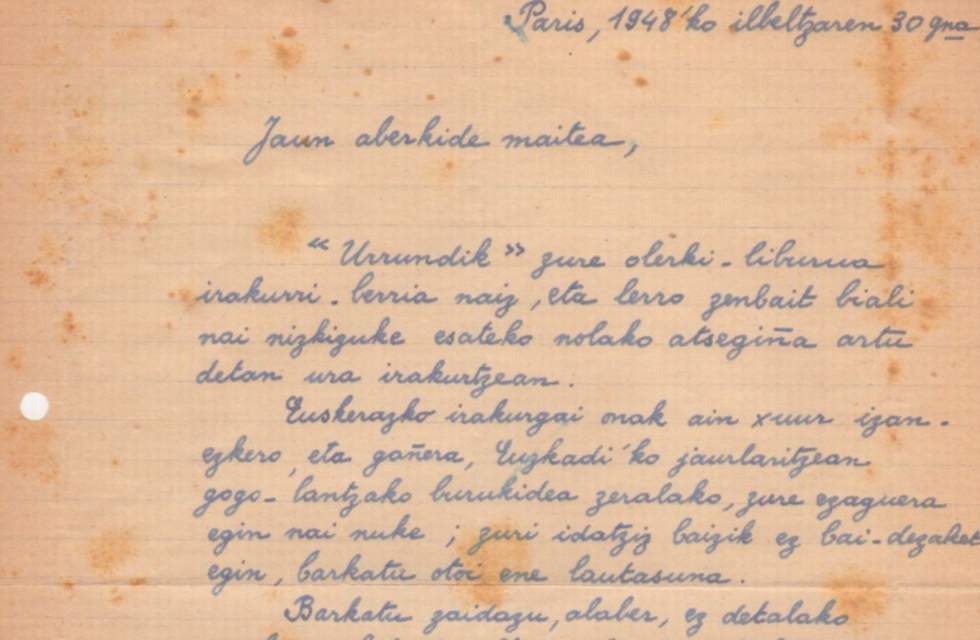 Paris, 1948'ko ilbeltzaren 30 gna
Jaun aberkide maitea,
“ Urrundik ” zure olerki-liburua
irakurri-berria naiz, eta lerro zenbait biali
nai nizkizuke esateko nolako atsegiña artu
detan ura irakurtzean.
Euskerazko irakurgai onak ain xuur izan-
ezkero, eta gañera, Euzkadi'ko jaurlaritzean
gogo-lantzako burukidea zeralako, zure ezaguera
egin nai nuke ; zuri idatziz baizik ez bai-dezaket
egin, barkatu otoi ene lautasuna.
Barkatu zaidazu, alaber, ez detalako